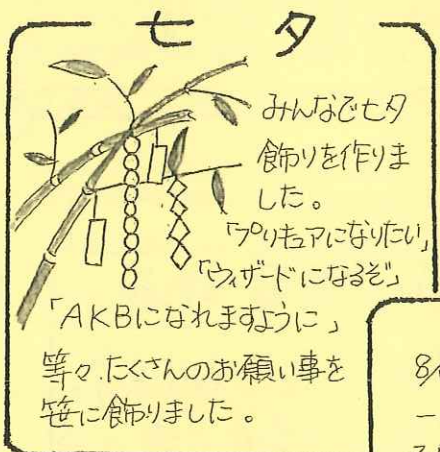 七夕
みんなで七夕
飾りを作りま
した。
「プリキュアになりたい」
「ウィザードになるぞ」
「AKBになれますように」
等々、たくさんのお願い事を
笹に飾りました。
8/
一